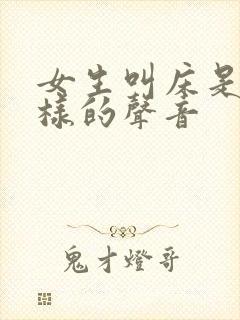 女生叫床是
樣的聲音
鬼才燈哥